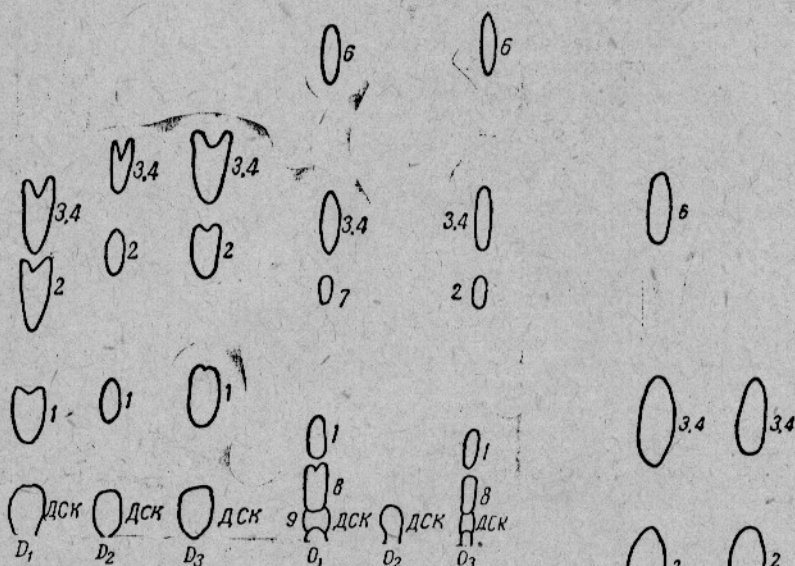 6 6
3,4 3,4
3,4 3,4 3,4 6
2 2
2 7 2
1 1 1 3,4 3,4
1 1
8 8
ДСК ДСК ДСК 9 ДСК ДСК ДСК
D₁ D₂ D₃ O₁ O₂ O₃ 2 2